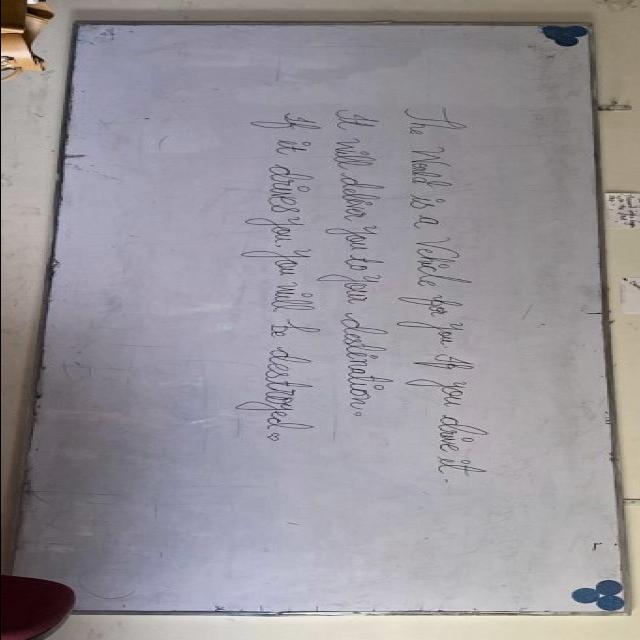 The World is a Vehicle for you If you drive it.
It will deliver you to your destination.
If it drives you you will be destroyed.